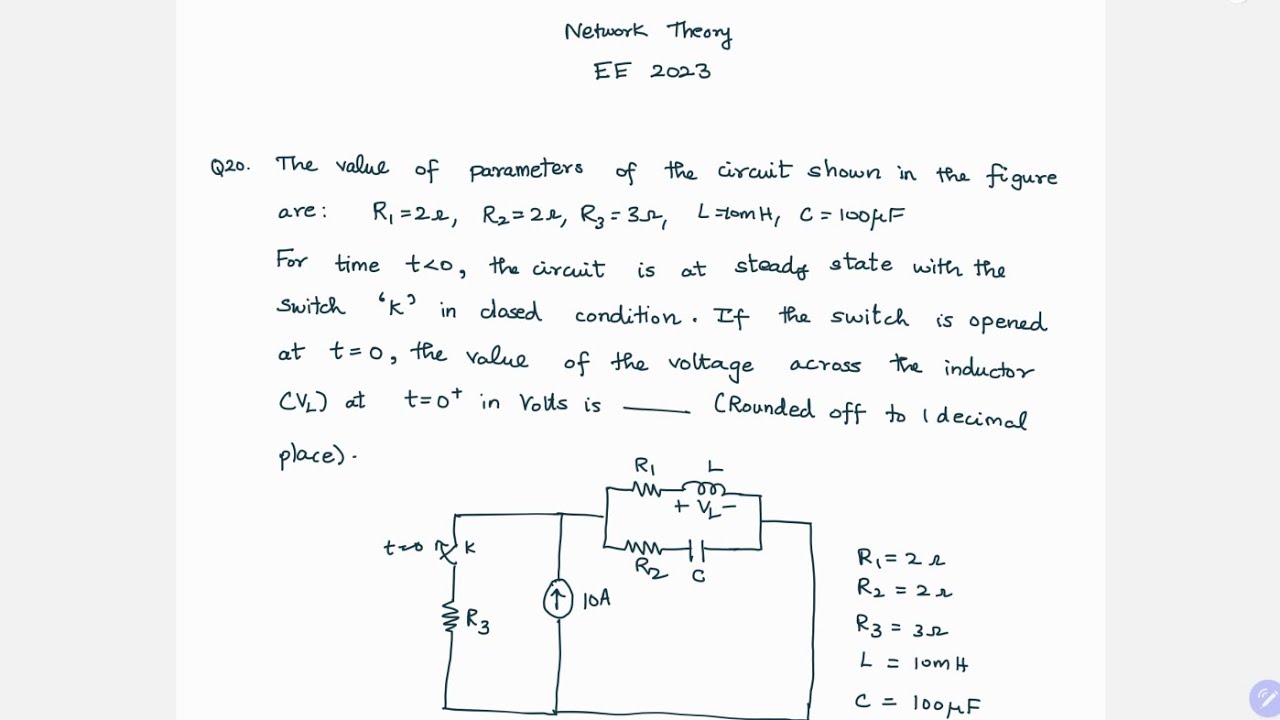 Network Theory
EE 2023
Q20. The value of parameters of the circuit shown in the figure
are: R₁=2Ω, R₂=2Ω, R₃=3Ω, L=10mH, C=100μF
For time t<0, the circuit is at steady state with the
switch 'K' in closed condition. If the switch is opened
at t=0, the value of the voltage across the inductor
(VL) at t=0⁺ in Volts is ____ (Rounded off to 1 decimal
place).
R₁ L
+ VL -
t=0 K
R₂ C
R₁ = 2Ω
10A
R₂ = 2Ω
R₃
R₃ = 3Ω
L = 10mH
C = 100μF